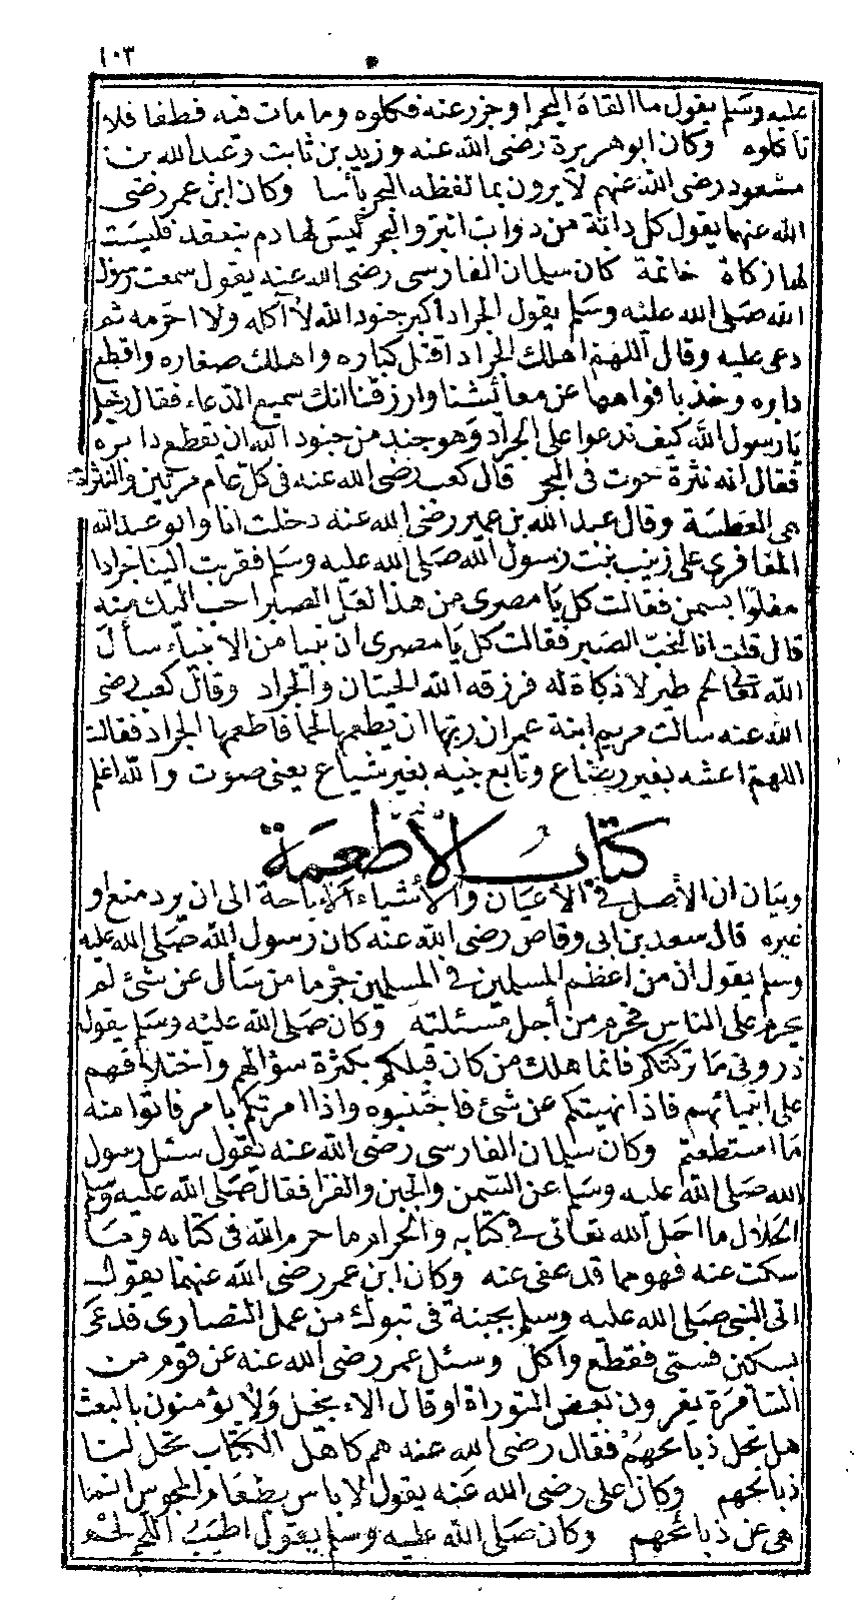 ١٠٣
عليه وسلم يقول ما القاه البحر او جزر عنه فكلوه وما مات فيه فطفا فلا
تاكلوه وكان ابو هريرة رضى الله عنه وزيد بن ثابت وعبد الله بن
مسعود رضى الله عنهم لا يرون بما لفظه البحر بأسا وكان ابن عمر رضى
الله عنهما يقول كل دابة من دواب البر والبحر ليس لها دم ينعقد فليست
لها زكاة خاتمة كان سلمان الفارسى رضى الله عنه يقول سمعت رسول
الله صلى الله عليه وسلم يقول الجراد اكبر جنود الله لا آكله ولا احرمه ثم
دعى عليه وقال اللهم اهلك الجراد اقتل كباره واهلك صغاره واقطع
دابره وخذ بافواهها عن معائشنا وارزقنا انك سميع الدعاء فقال رجل
يا رسول الله كيف تدعوا على الجراد وهو جند من جنود الله ان تقطع دابره
فقال انه نثرة حوت فى البحر قال كعب رضى الله عنه فى كل عام مرتين والنثرة
هى العطسة وقال عبد الله بن عمير رضى الله عنه دخلت انا وابو عبد الله
المغافرى على زينب بنت رسول الله صلى الله عليه وسلم فقربت الينا جرادا
مقلوا بسمن فقالت كل يا مصرى من هذا لعل الصير احب اليك منه
قال قلت انا لنحب الصير فقالت كل يا مصرى ان نبيا من الانبياء سأل
الله تعالى لحم طير لا ذكاة له فرزقه الله الحيتان والجراد وقال كعب رضى
الله عنه سالت مريم ابنة عمران ربها ان يطعمها لحما فاطعمها الجراد فقالت
اللهم اعشه بغير رضاع وتابع بنيه بغير شياع يعنى صوت والله اعلم
كتاب الأطعمة
وبيان ان الأصل فى الأعيان والأشياء الاباحة الى ان يرد منع او
غيره قال سعد بن ابى وقاص رضى الله عنه كان رسول الله صلى الله عليه
وسلم يقول ان من اعظم المسلمين فى المسلمين جرما من سأل عن شئ لم
يحرم على الناس فحرم من أجل مسئلته وكان صلى الله عليه وسلم يقول
ذرونى ما تركتكم فانما هلك من كان قبلكم بكثرة سؤالهم واختلافهم
على انبيائهم فاذا نهيتكم عن شئ فاجتنبوه واذا امرتكم بامر فاتوا منه
ما استطعتم وكان سلمان الفارسى رضى الله عنه يقول سئل رسول
الله صلى الله عليه وسلم عن السمن والجبن والفرا فقال صلى الله عليه وسلم
الحلال ما احل الله تعالى فى كتابه والحرام ما حرم الله فى كتابه وما
سكت عنه فهو مما قد عفى عنه وكان ابن عمر رضى الله عنهما يقول
اتى النبى صلى الله عليه وسلم بجبنة فى تبوك من عمل النصارى فدعى
بسكين فسمى فقطع واكل وسئل عمر رضى الله عنه عن قوم من
السامرة يقرون بعض التوراة او قال الانجيل ولا يؤمنون بالبعث
هل تحل ذبائحهم فقال رضى الله عنه هم كاهل الكتاب تحل لنا
ذبائحهم وكان على رضى الله عنه يقول لا باس بطعام المجوس انما
هى عن ذبائحهم وكان صلى الله عليه وسلم يقول اطيب اللحم لحم